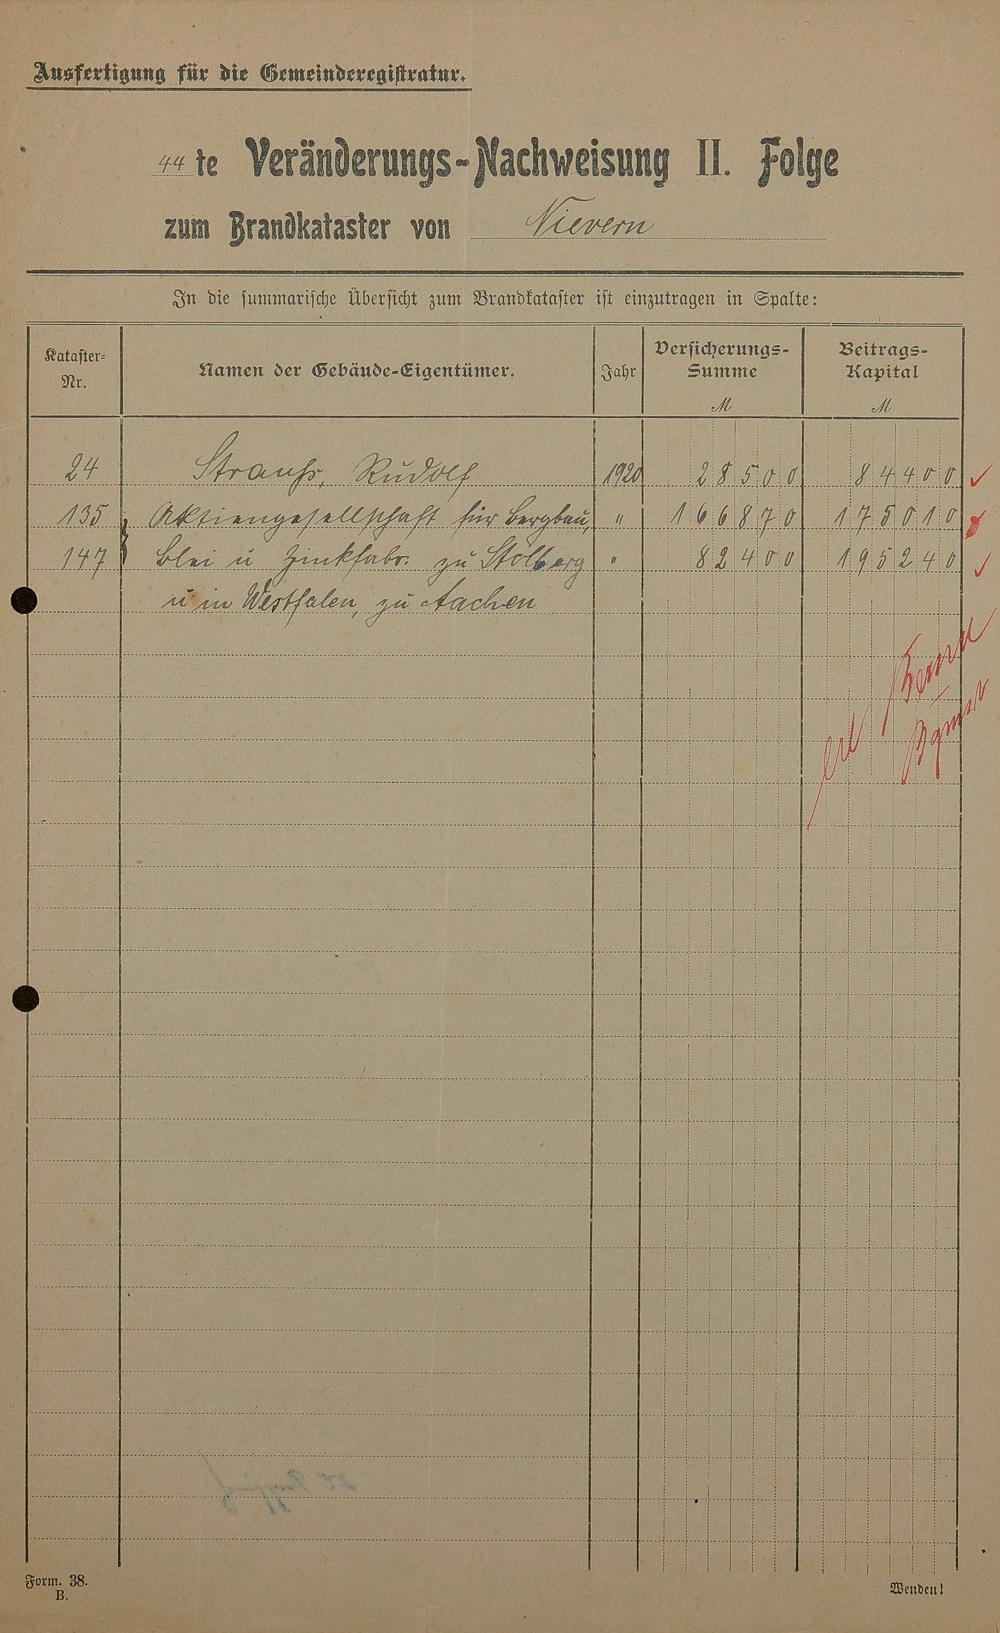 Ausfertigung für die Gemeinderegistratur.
44te Veränderungs-Nachweisung II. Folge
zum Brandkataster von Nievern
In die summarische Übersicht zum Brandkataster ist einzutragen in Spalte:
Kataster-Nr. Namen der Gebäude-Eigentümer. Jahr Versicherungs-Summe M Beitrags-Kapital M
24 Strauß, Rudolf 1920 28500 84400
135 Aktiengesellschaft für Bergbau, " 166870 175010
147 Blei u Zinkfabr. zu Stolberg " 82400 195240
u in Westfalen, zu Aachen
Form. 38.
B.
Wenden!